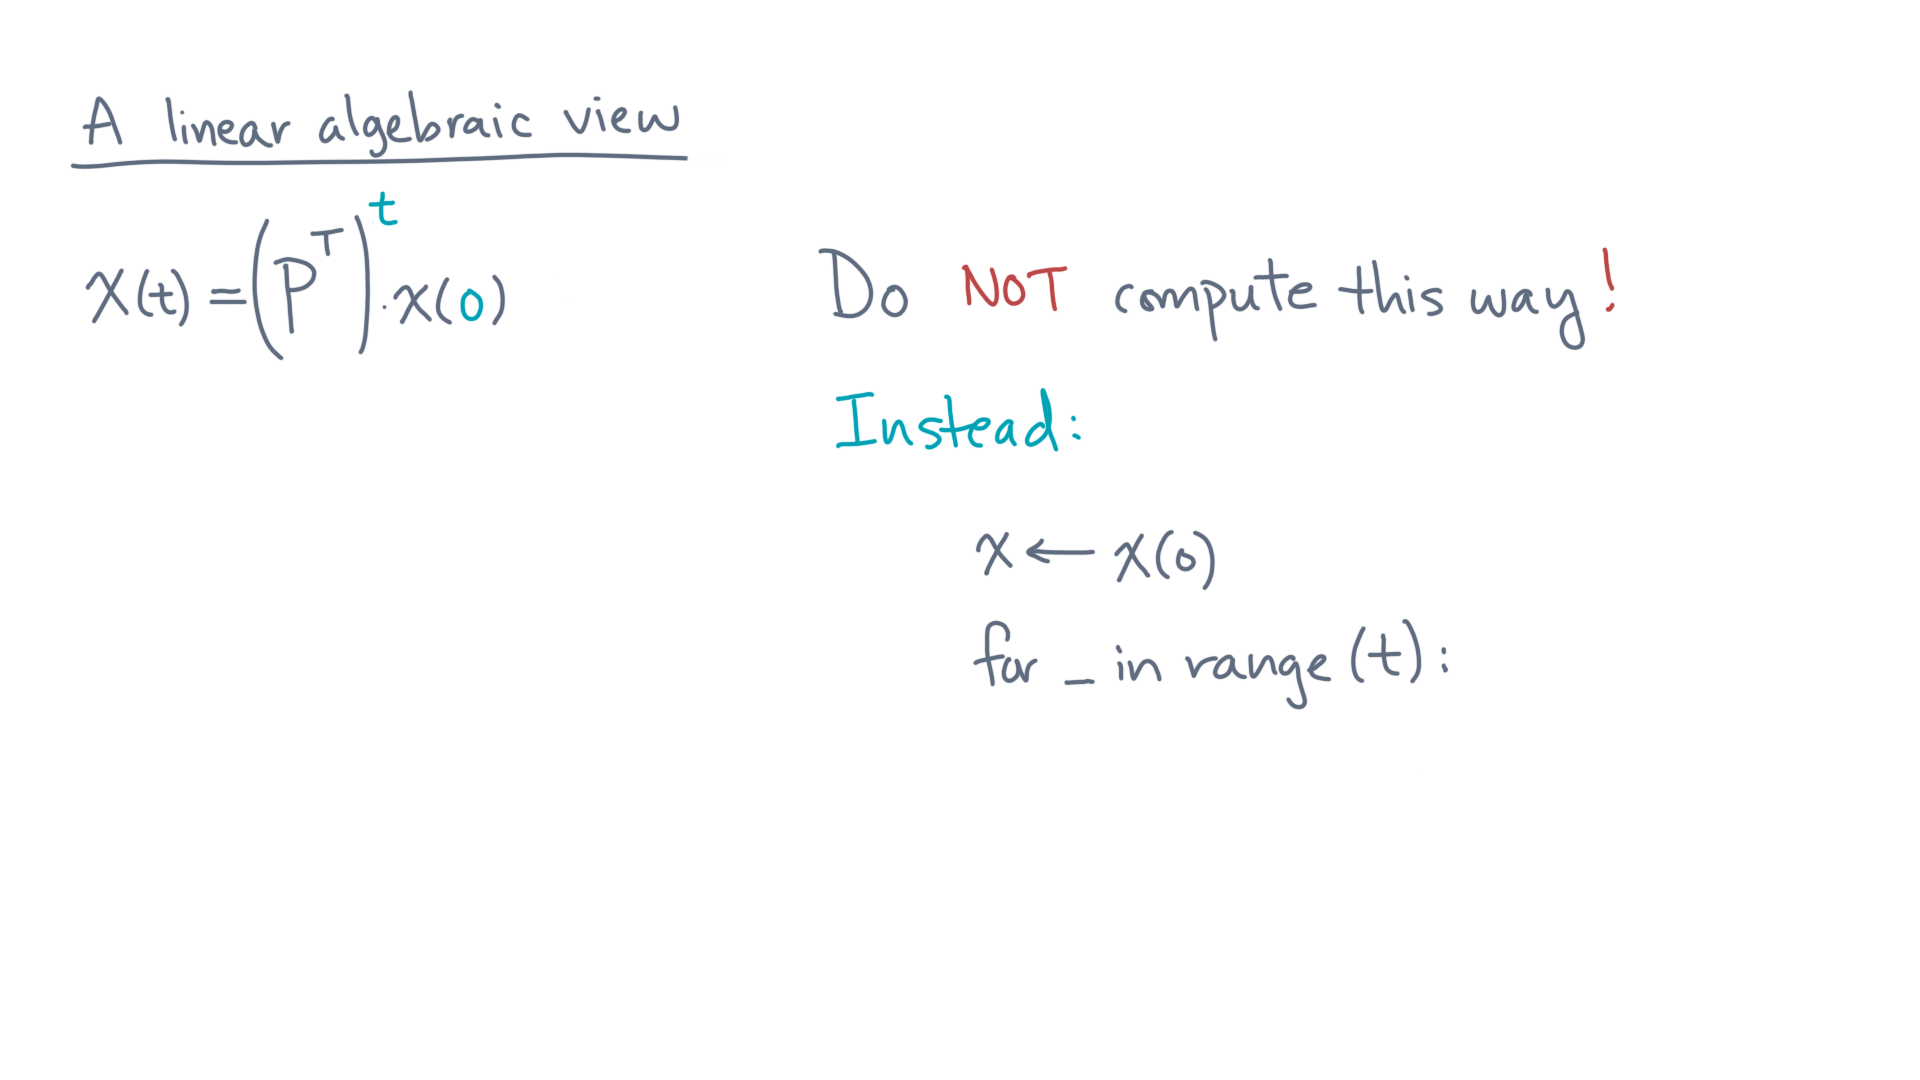 A linear algebraic view
x(t) = (P^T)^t · x(0)
Do NOT compute this way!
Instead:
x ← x(0)
for _ in range(t):